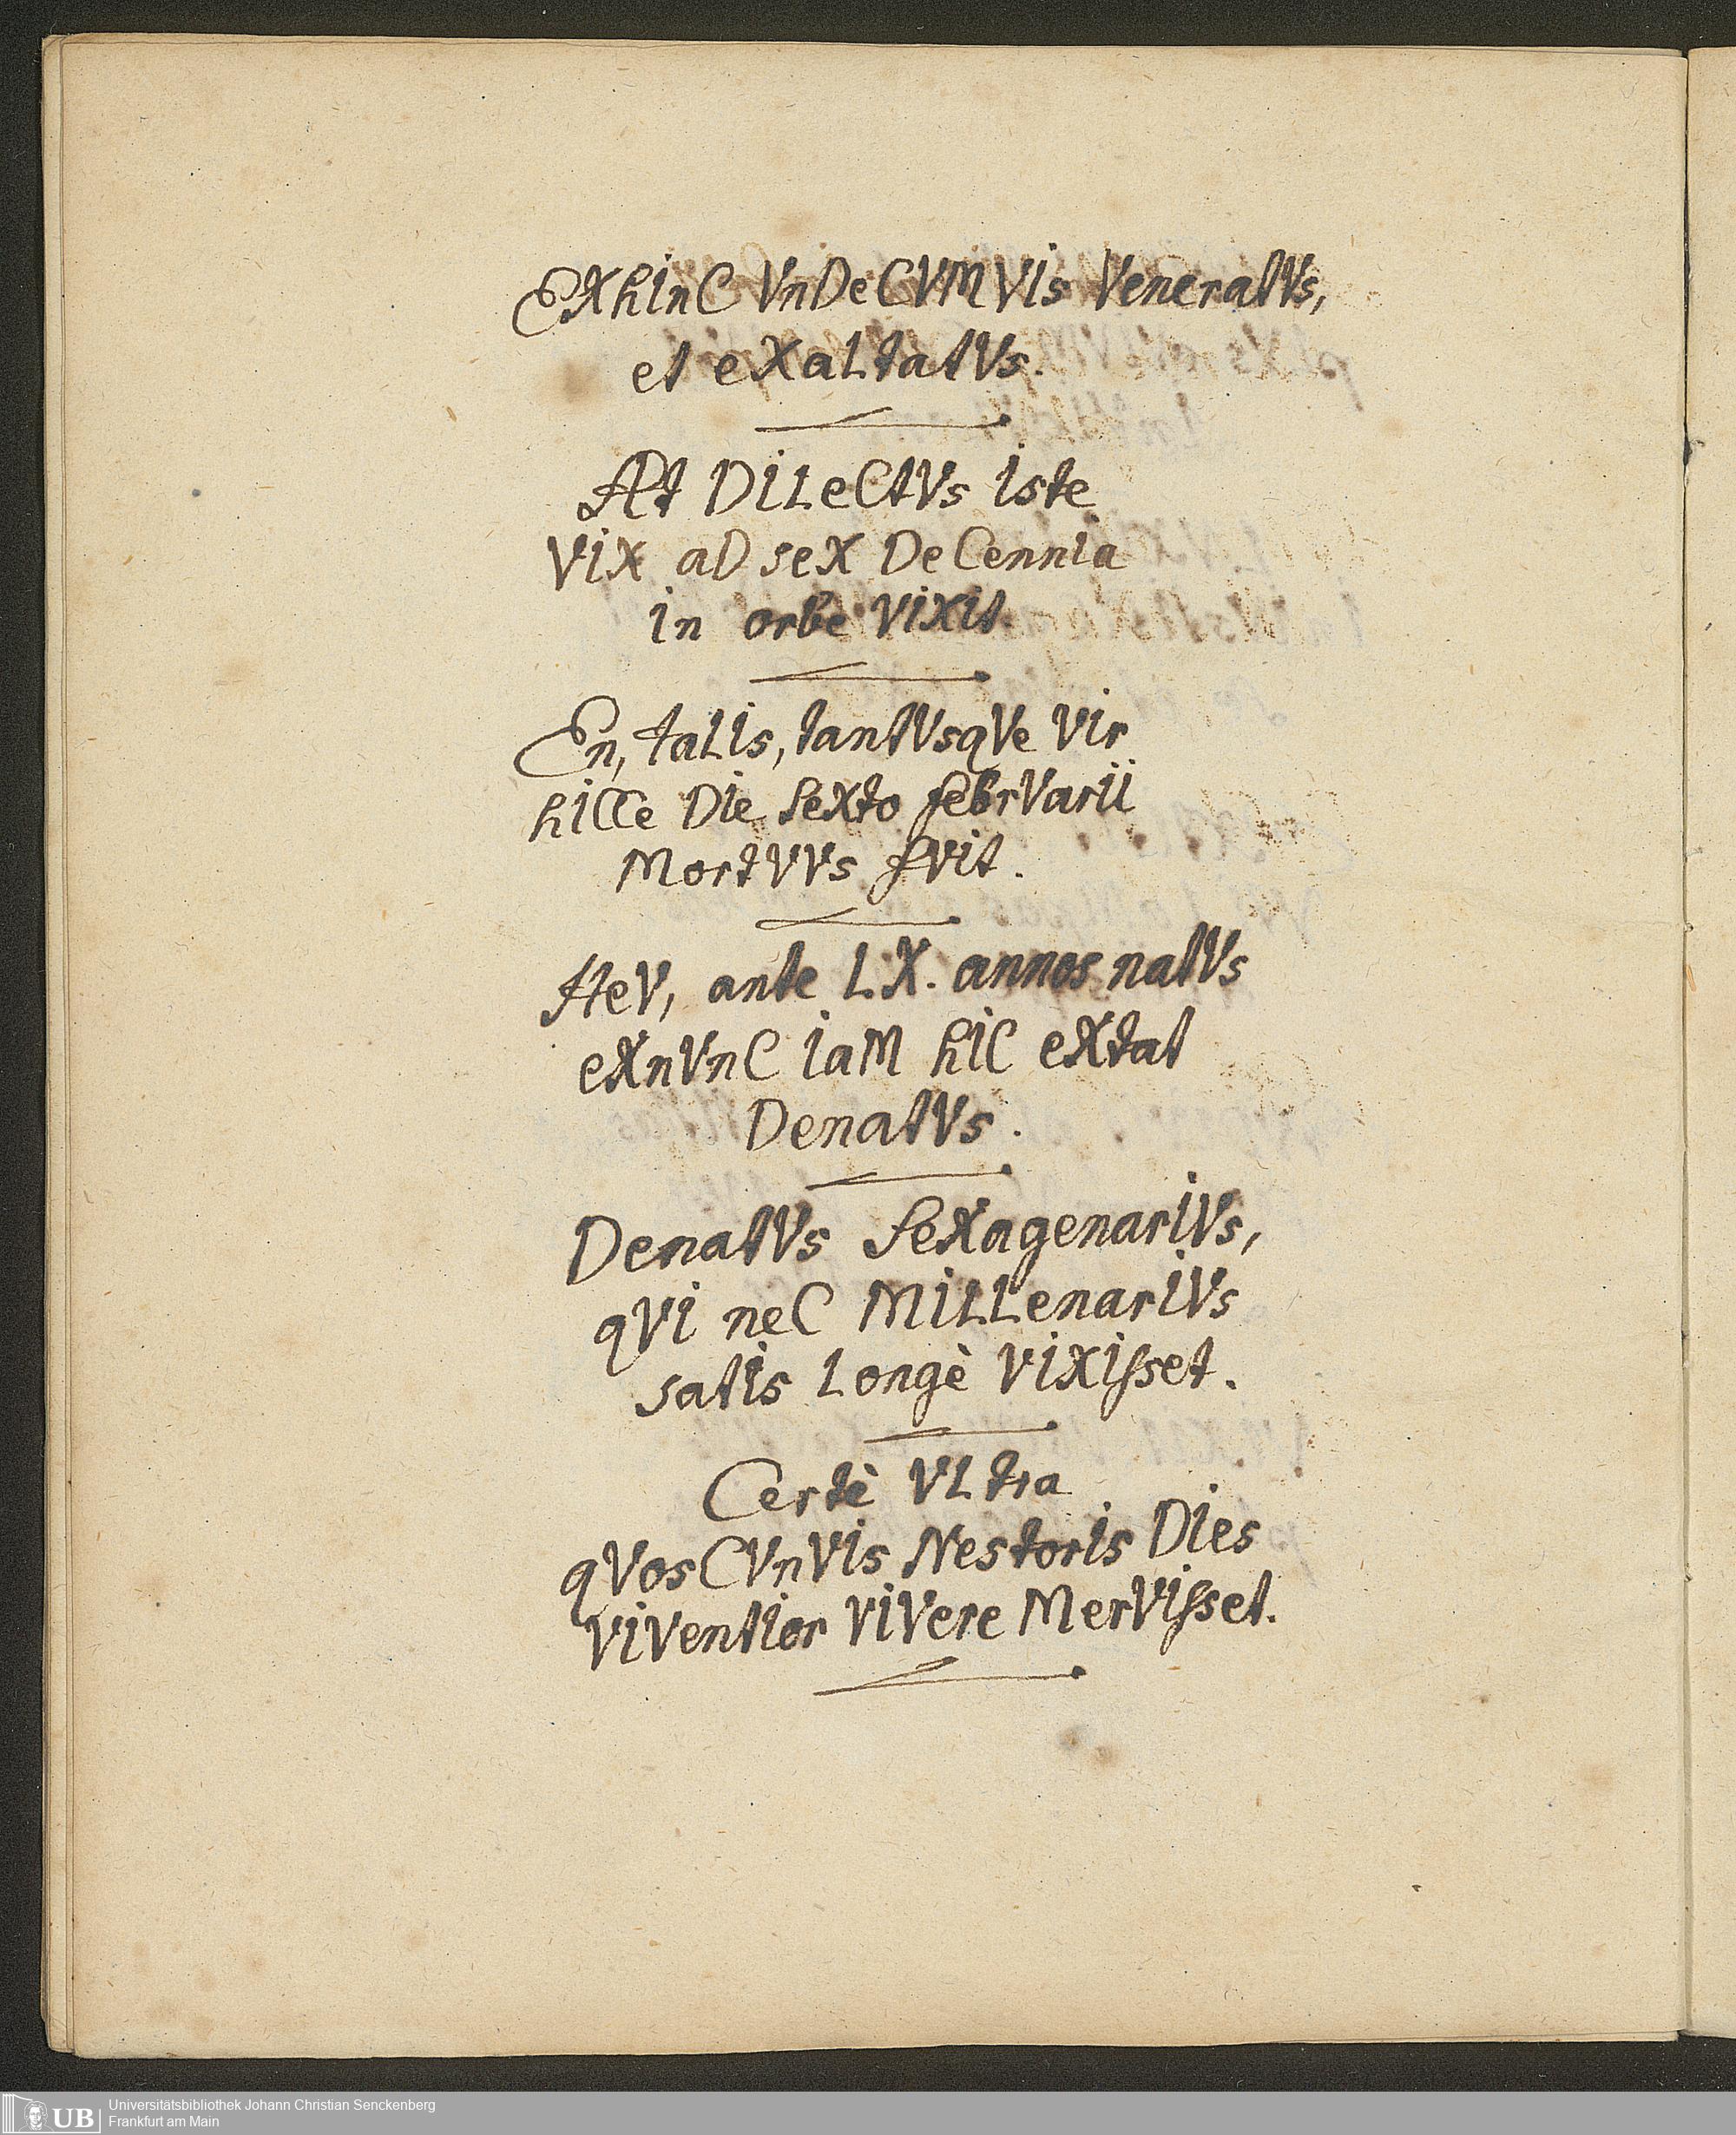 EXhInC VnDeCVMVIs VeneratVs,
et eXaLtatVs.
At DILeCtVs Iste
VIX aD seX DeCennIa
In orbe VIXIt.
En, taLIs, tantVsqVe VIr
hICCe DIe seXto febrVarII
MortVVs fVIt.
HeV, ante LX. annos natVs
eXnVnC IaM hIC eXtat
DenatVs.
DenatVs seXagenarIVs,
qVI neC MILLenarIVs
satIs Longè VIXIsset.
Certè VLtra
qVosCVnVIs NestorIs DIes
VIVentIor VIVere MerVIsset.
UB
Universitätsbibliothek Johann Christian Senckenberg
Frankfurt am Main